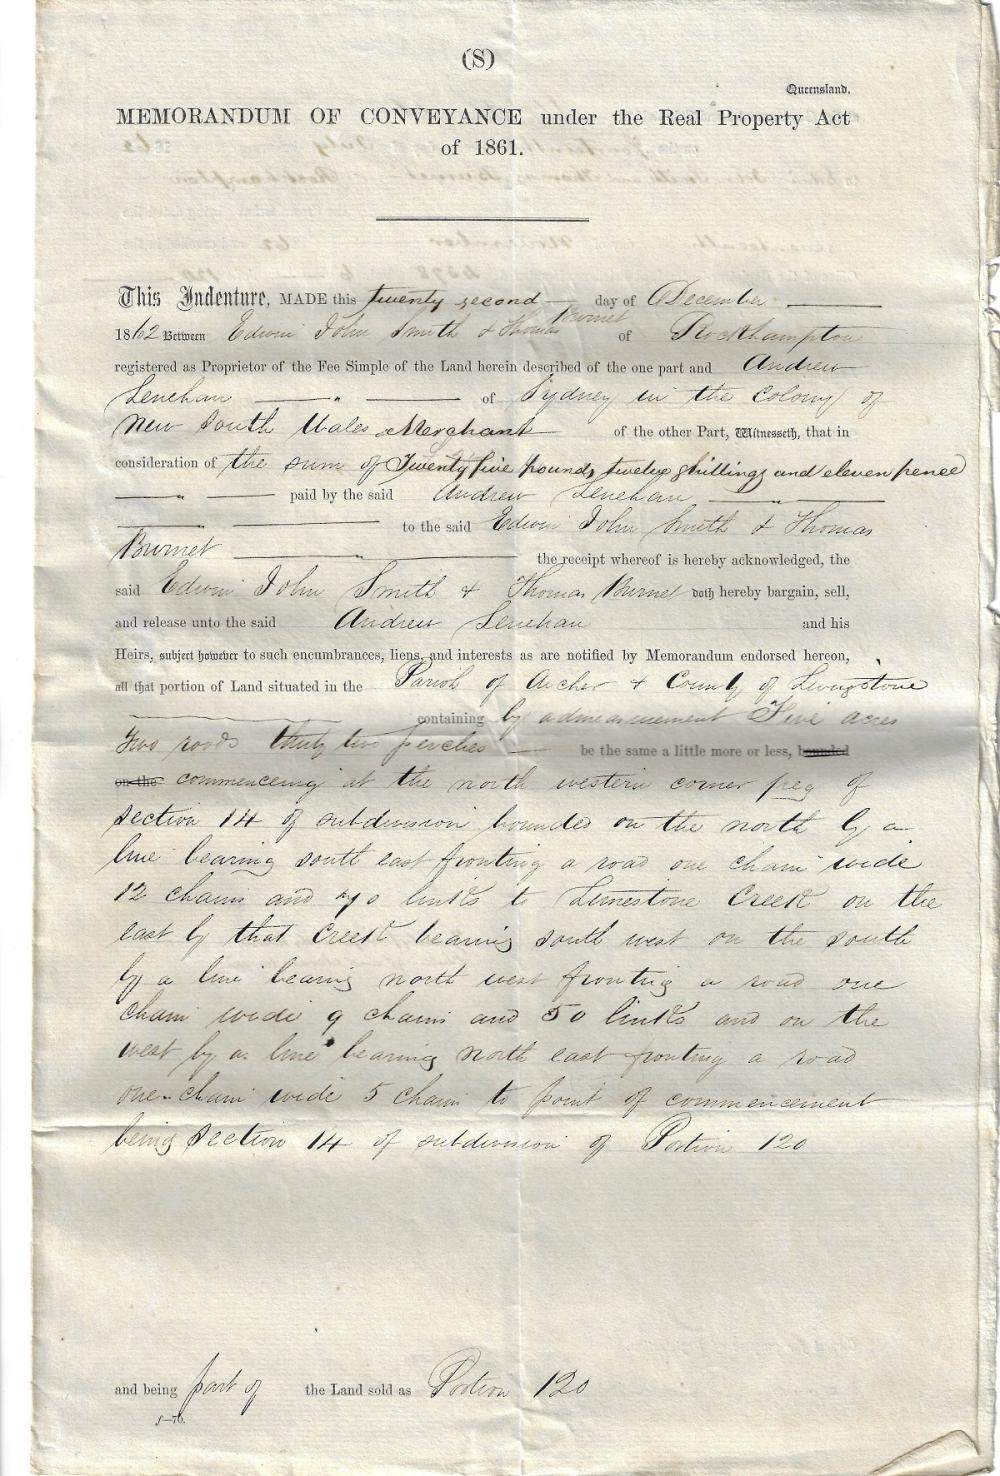 (S)
Queensland.
MEMORANDUM OF CONVEYANCE under the Real Property Act
of 1861.
This Indenture, MADE this twenty second day of December
1862 Between Edwin John Smith & Thomas Burnet of Rockhampton
registered as Proprietor of the Fee Simple of the Land herein described of the one part and Andrew
Lenehan " of Sydney in the Colony of
New South Wales Merchant of the other Part, Witnesseth, that in
consideration of the sum of Twenty five pounds twelve shillings and eleven pence
" paid by the said Andrew Lenehan "
" to the said Edwin John Smith & Thomas
Burnet " the receipt whereof is hereby acknowledged, the
said Edwin John Smith & Thomas Burnet doth hereby bargain, sell,
and release unto the said Andrew Lenehan and his
Heirs, subject however to such encumbrances, liens, and interests as are notified by Memorandum endorsed hereon,
all that portion of Land situated in the Parish of Archer & County of Livingstone
containing by admeasurement Five acres
Two roods thirty two perches be the same a little more or less, bounded
on the commencing at the north western corner peg of
section 14 of subdivision bounded on the north by a
line bearing south east fronting a road one chain wide
12 chains and 70 links to Limestone Creek on the
east by that Creek bearing south west on the south
by a line bearing north west fronting a road one
chain wide 9 chains and 50 links and on the
west by a line bearing north east fronting a road
one chain wide 5 chains to point of commencement
being section 14 of subdivision of Portion 120
and being part of the Land sold as Portion 120